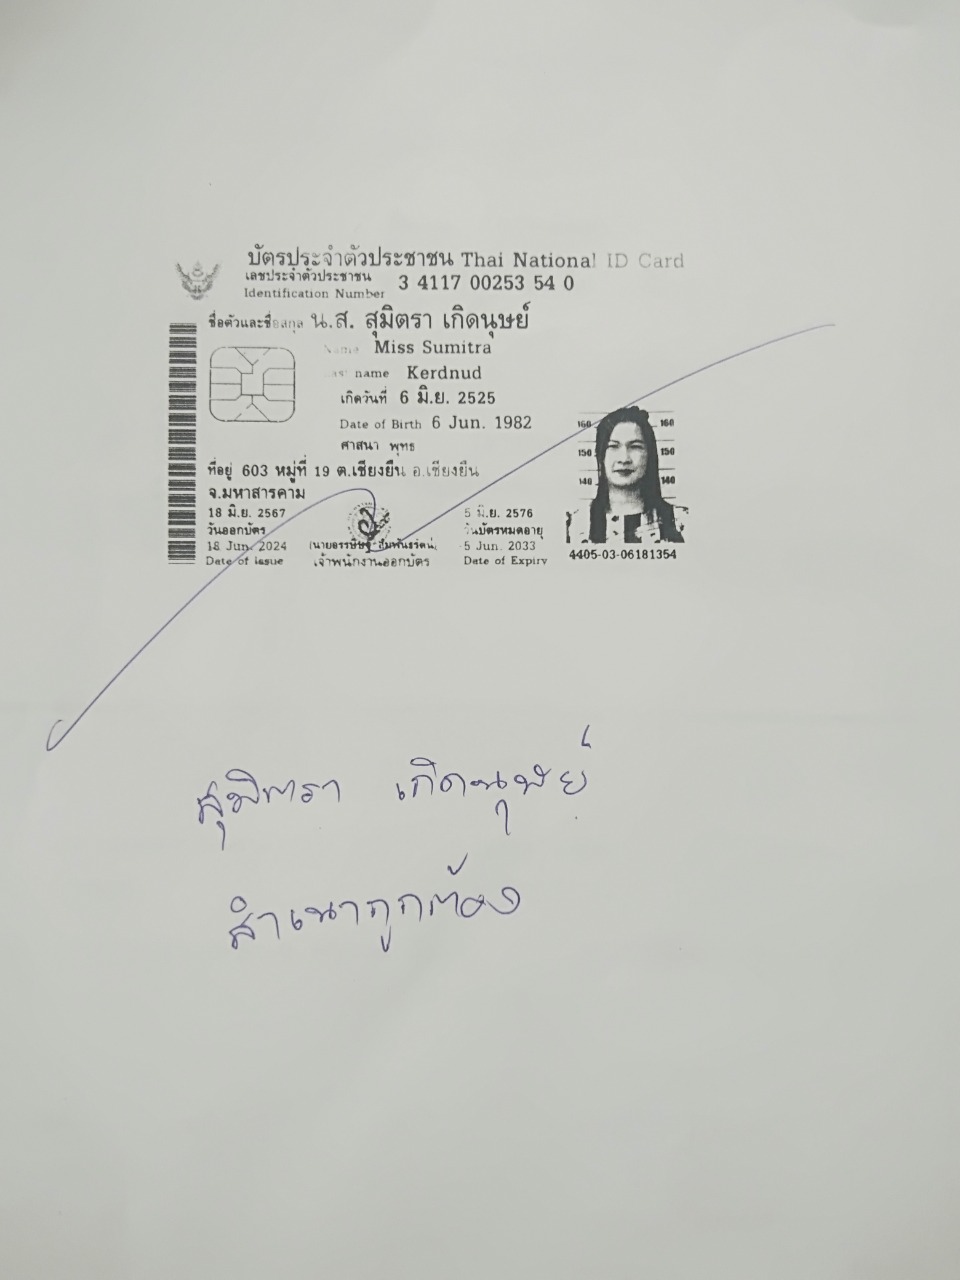 บัตรประจำตัวประชาชน Thai National ID Card
เลขประจำตัวประชาชน
Identification Number 3 4117 00253 54 0
ชื่อตัวและชื่อสกุล น.ส. สุมิตรา เกิดนุษย์
Name Miss Sumitra
name Kerdnud
เกิดวันที่ 6 มิ.ย. 2525
Date of Birth 6 Jun. 1982
ศาสนา พุทธ
ที่อยู่ 603 หมู่ที่ 19 ต.เชียงยืน อ.เชียงยืน
จ.มหาสารคาม
18 มิ.ย. 2567
วันออกบัตร
18 Jun. 2024
Date of Issue
เจ้าพนักงานออกบัตร
5 มิ.ย. 2576
วันบัตรหมดอายุ
5 Jun. 2033
Date of Expiry
160 160
150 150
140 140
4405-03-06181354
สุมิตรา เกิดนุษย์
สำเนาถูกต้อง